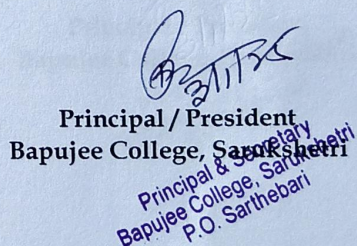 Principal / President
Bapujee College, Sarukshetri
Principal & Secretary
Bapujee College, Sarukshetri
P.O. Sarthebari